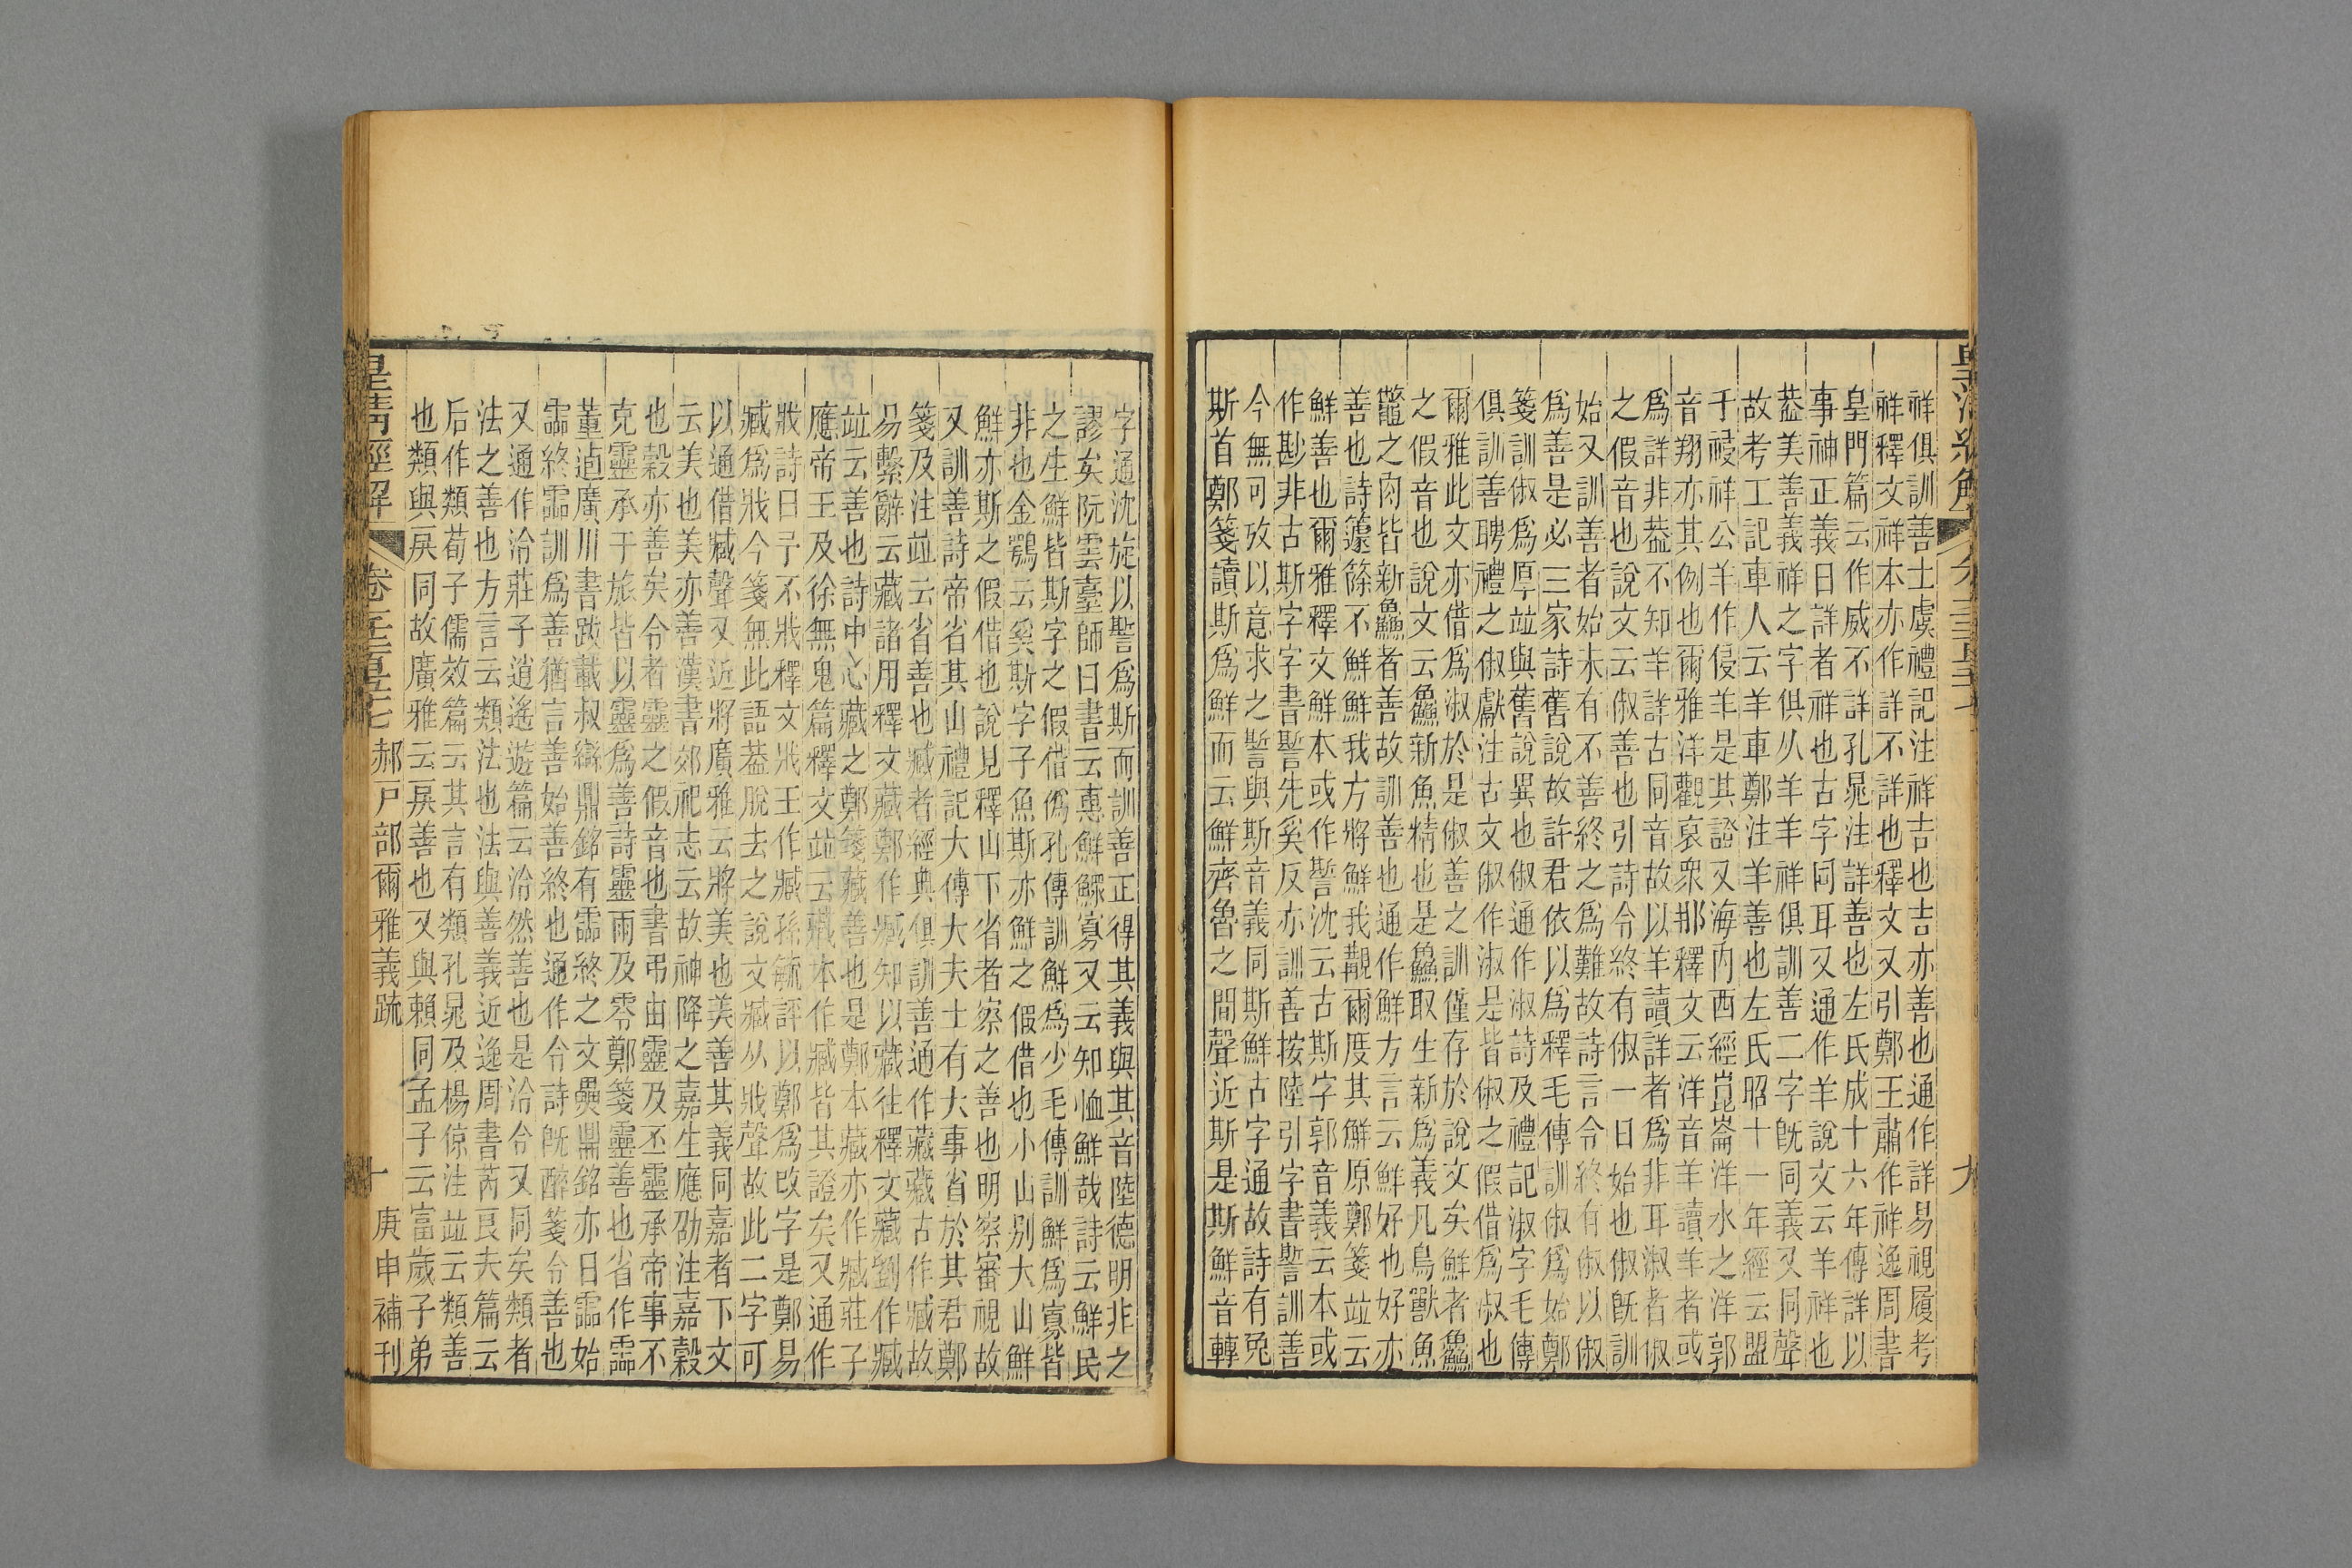 祥俱訓善士虞禮記注祥吉也吉亦善也通作詳易視履考
祥釋文祥本亦作詳不詳也釋文又引鄭王肅作祥逸周書
皇門篇云作威不詳孔晁注詳善也左氏成十六年傳詳以
事神正義曰詳者祥也古字同耳又通作羊說文云羊祥也
葢美善義祥之字俱从羊羊祥俱訓善二字旣同義又同聲
故考工記車人云羊車鄭注羊善也左氏昭十一年經云盟
于祲祥公羊作侵羊是其證又海內西經崑崙洋水之洋郭
音翔亦其例也爾雅洋觀裒衆那釋文云洋音羊讀羊者或
爲詳非葢不知羊詳古同音故以羊讀詳者爲非耳淑者俶
之假音也說文云俶善也引詩令終有俶一曰始也俶旣訓
始又訓善者始未有不善終之爲難故詩言令終有俶以俶
爲善是必三家詩舊說故許君依以爲釋毛傳訓俶爲始鄭
箋訓俶爲厚竝與舊說異也俶通作淑詩及禮記淑字毛傳
俱訓善聘禮之俶獻注古文俶作淑是皆俶之假借爲淑也
爾雅此文亦借爲淑於是俶善之訓僅存於說文矣鮮者鱻
之假音也說文云鱻新魚精也是鱻取生新爲義凡鳥獸魚
鼈之肉皆新鱻者善故訓善也通作鮮方言云鮮好也好亦
善也詩籧篨不鮮鮮我方將鮮我覯爾度其鮮原鄭箋竝云
鮮善也爾雅釋文鮮本或作誓沈云古斯字郭音義云本或
作尠非古斯字字書誓先奚反亦訓善按陸引字書誓訓善
今無可攷以意求之誓與斯音義同斯鮮古字通故詩有兎
斯首鄭箋讀斯爲鮮而云鮮齊魯之間聲近斯是斯鮮音轉
字通沈旋以誓爲斯而訓善正得其義與其音陸德明非之
謬矣阮雲臺師曰書云惠鮮鰥寡又云知恤鮮哉詩云鮮民
之生鮮皆斯字之假借僞孔傳訓鮮爲少毛傳訓鮮爲寡皆
非也金鶚云奚斯字子魚斯亦鮮之假借也小山别大山鮮
鮮亦斯之假借也說見釋山下省者察之善也明察審視故
又訓善詩帝省其山禮記大傳大夫士有大事省於其君鄭
箋及注竝云省善也臧者經典俱訓善通作藏藏古作臧故
易繫辭云藏諸用釋文藏鄭作臧知以藏往釋文藏劉作臧
竝云善也詩中心藏之鄭箋藏善也是鄭本藏亦作臧莊子
應帝王及徐無鬼篇釋文竝云藏本作臧皆其證矣又通作
戕詩曰予不戕釋文戕王作臧孫毓評以鄭爲改字是鄭易
臧爲戕今箋無此語葢脫去之說文臧从戕聲故此二字可
以通借臧聲又近將廣雅云將美也美善其義同嘉者下文
云美也美亦善漢書郊祀志云故神降之嘉生應劭注嘉穀
也穀亦善矣令者靈之假音也書弔由靈及丕靈承帝事不
克靈承于旅皆以靈爲善詩靈雨及零鄭箋靈善也省作霝
董逌廣川書跋載叔䜌鼎銘有霝終之文㷟鼎銘亦曰霝始
霝終霝訓爲善猶言善始善終也通作令詩旣醉箋令善也
又通作泠莊子逍遙遊篇云泠然善也是泠令又同矣類者
法之善也方言云類法也法與善義近逸周書芮良夫篇云
后作類荀子儒效篇云其言有類孔晁及楊倞注竝云類善
也類與戾同故廣雅云戾善也又與賴同孟子云富歲子弟
皇清經解 卷千二百五十七 郝戸部爾雅義疏 十 庚申補刊